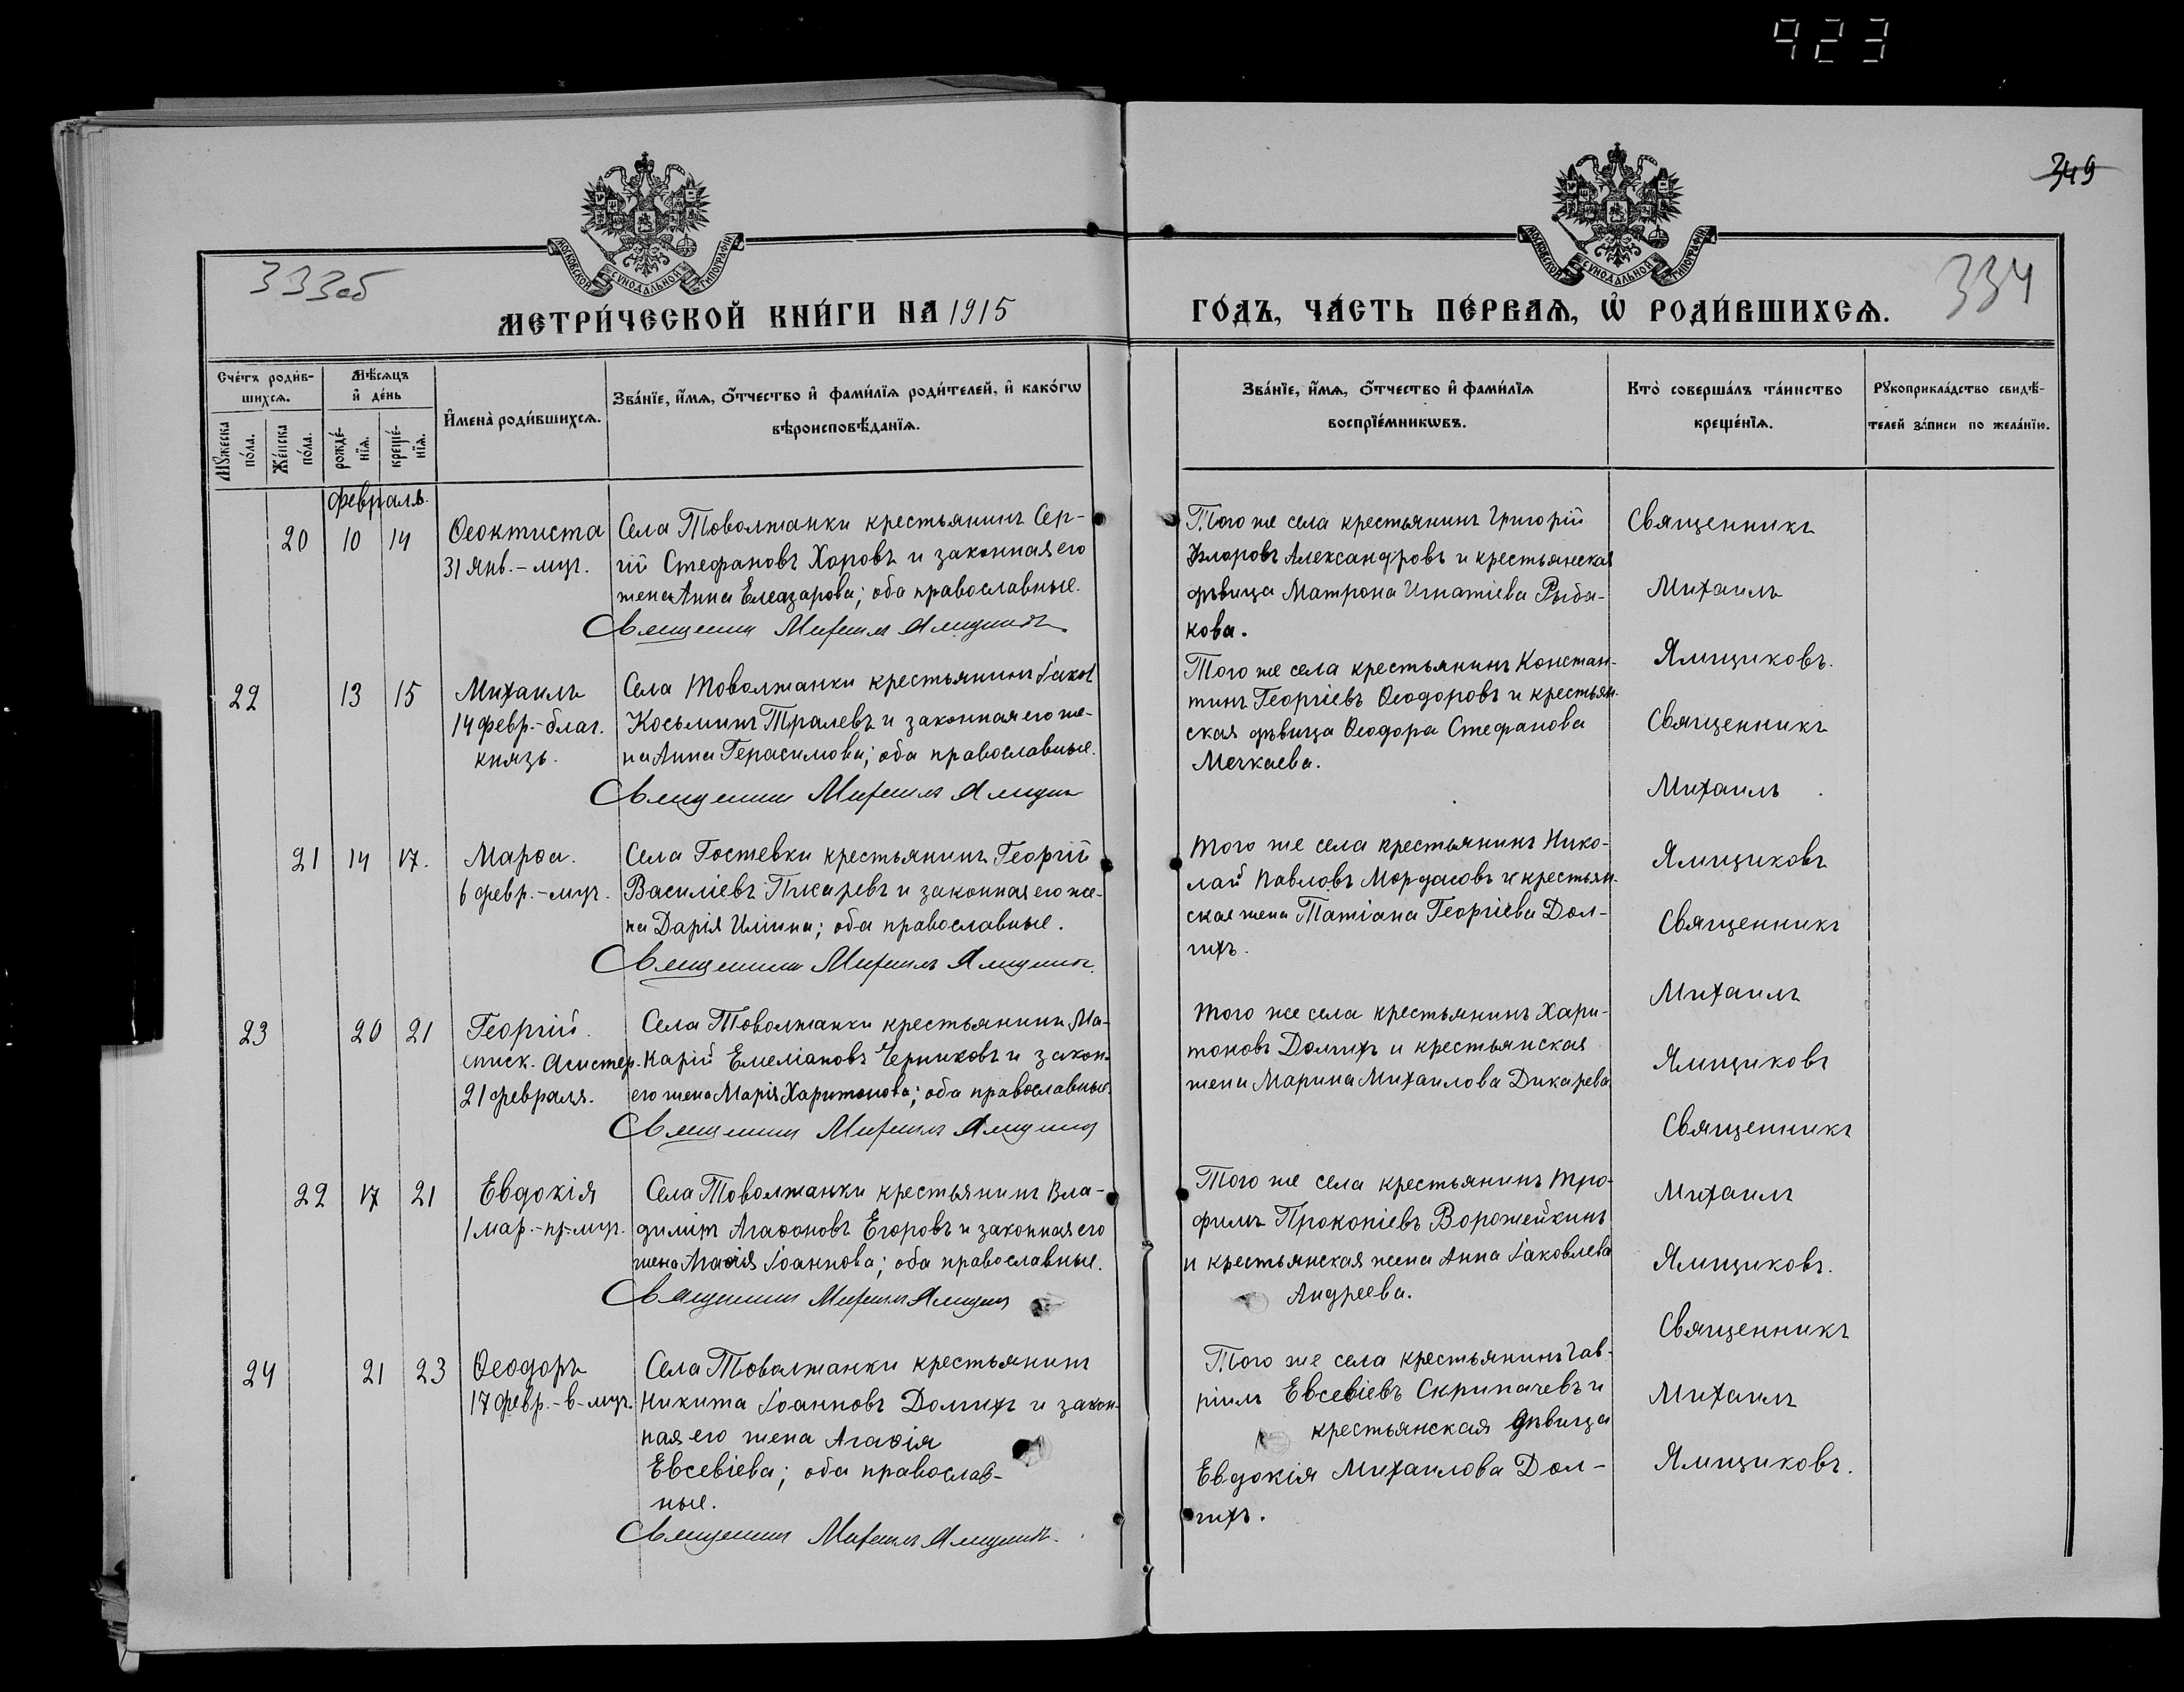 923
349
МОСКОВСКОЙ СУНОДАЛЬНОЙ ТИПОГРАФИИ
МОСКОВСКОЙ СУНОДАЛЬНОЙ ТИПОГРАФИИ
333об
334
МЕТРИ́ЧЕСКОЙ КНИ́ГИ НА 1915
ГО́ДЪ, ЧА́СТЬ ПЕ́РВАѦ, Ѡ҆ РОДИ́ВШИХСѦ.
Сче́тъ роди́в-
шихсѧ.
Мꙋ́жеска по́ла.
Же́нска по́ла.
Мѣ́сѧцъ
и҆ де́нь
рожде́-
нїѧ.
креще́-
нїѧ.
И҆мена̀ роди́вшихсѧ.
Зва́нїе, и҆́мѧ, ѻ҆́тчество и҆ фами́лїѧ роди́телей, и҆ како́гѡ
вѣроисповѣ́данїѧ.
Зва́нїе, и҆́мѧ, ѻ҆́тчество и҆ фами́лїѧ
воспрїе́мникѡвъ.
Кто̀ соверша́лъ та́инство
креще́нїѧ.
Рꙋкоприкла́дство свидѣ́-
телей за́писи по жела́нїю.
Февраль.
20 10 14
Ѳеоктиста
31 Янв.-муч.
Села Товолжанки крестьянинъ Сер-
гій Стефановъ Хоровъ и законная его
жена Анна Елеазарова; оба православные.
Священникъ Михаилъ Ямщиковъ
Того же села крестьянинъ Григорій
Флоровъ Александровъ и крестьянская
дѣвица Матрона Игнатіева Рыба-
кова.
Священникъ
Михаилъ
Ямщиковъ.
22 13 15
Михаилъ
14 февр.-благ.
князь.
Села Товолжанки крестьянинъ Іаков
Косьминъ Тралевъ и законная его же-
на Анна Герасимова; оба православные.
Священникъ Михаилъ Ямщик
Того же села крестьянинъ Констан-
тинъ Георгіевъ Ѳеодоровъ и крестьян-
ская дѣвица Ѳеодора Стефанова
Мечкаева.
Священникъ
Михаилъ
Ямщиковъ
21 14 17.
Марѳа.
6 февр.-муч.
Села Гостевки крестьянинъ Георгій
Василіевъ Писаревъ и законная его же-
на Дарія Иліина; оба православные.
Священникъ Михаилъ Ямщиковъ.
Того же села крестьянинъ Нико-
лай Павловъ Мордасовъ и крестьян-
ская жена Татіана Георгіева Дол-
гихъ.
Священникъ
Михаилъ
Ямщиковъ
23 20 21
Георгій.
еписк. Амастер.
21 февраля.
Села Товолжанки крестьянинъ Ма-
карій Емеліановъ Черниковъ и закон.
его жена Марія Харитонова; оба православные.
Священникъ Михаилъ Ямщиков
Того же села крестьянинъ Хари-
тоновъ Долгихъ и крестьянская
жена Марина Михаилова Дикарева
Священникъ
Михаилъ
Ямщиковъ.
22 17 21
Евдокія
1 мар.-пр.-муч.
Села Товолжанки крестьянинъ Вла-
димиръ Агаѳоновъ Егоровъ и законная его
жена Агаѳія Іоаннова; оба православные.
Священникъ Михаилъ Ямщик
Того же села крестьянинъ Тро-
фимъ Прокопіевъ Ворожейкинъ
и крестьянская жена Анна Іаковлева
Андреева.
Священникъ
Михаилъ
Ямщиковъ.
24 21 23
Ѳеодоръ
17 февр.-в-муч.
Села Товолжанки крестьянинъ
Никита Іоанновъ Долгихъ и закон-
ная его жена Агаѳія
Евсевіева; оба православ-
ные.
Священникъ Михаилъ Ямщиковъ.
Того же села крестьянинъ Гав-
ріилъ Евсевіевъ Скрипачевъ и
крестьянская дѣвица
Евдокія Михаилова Дол-
гихъ.